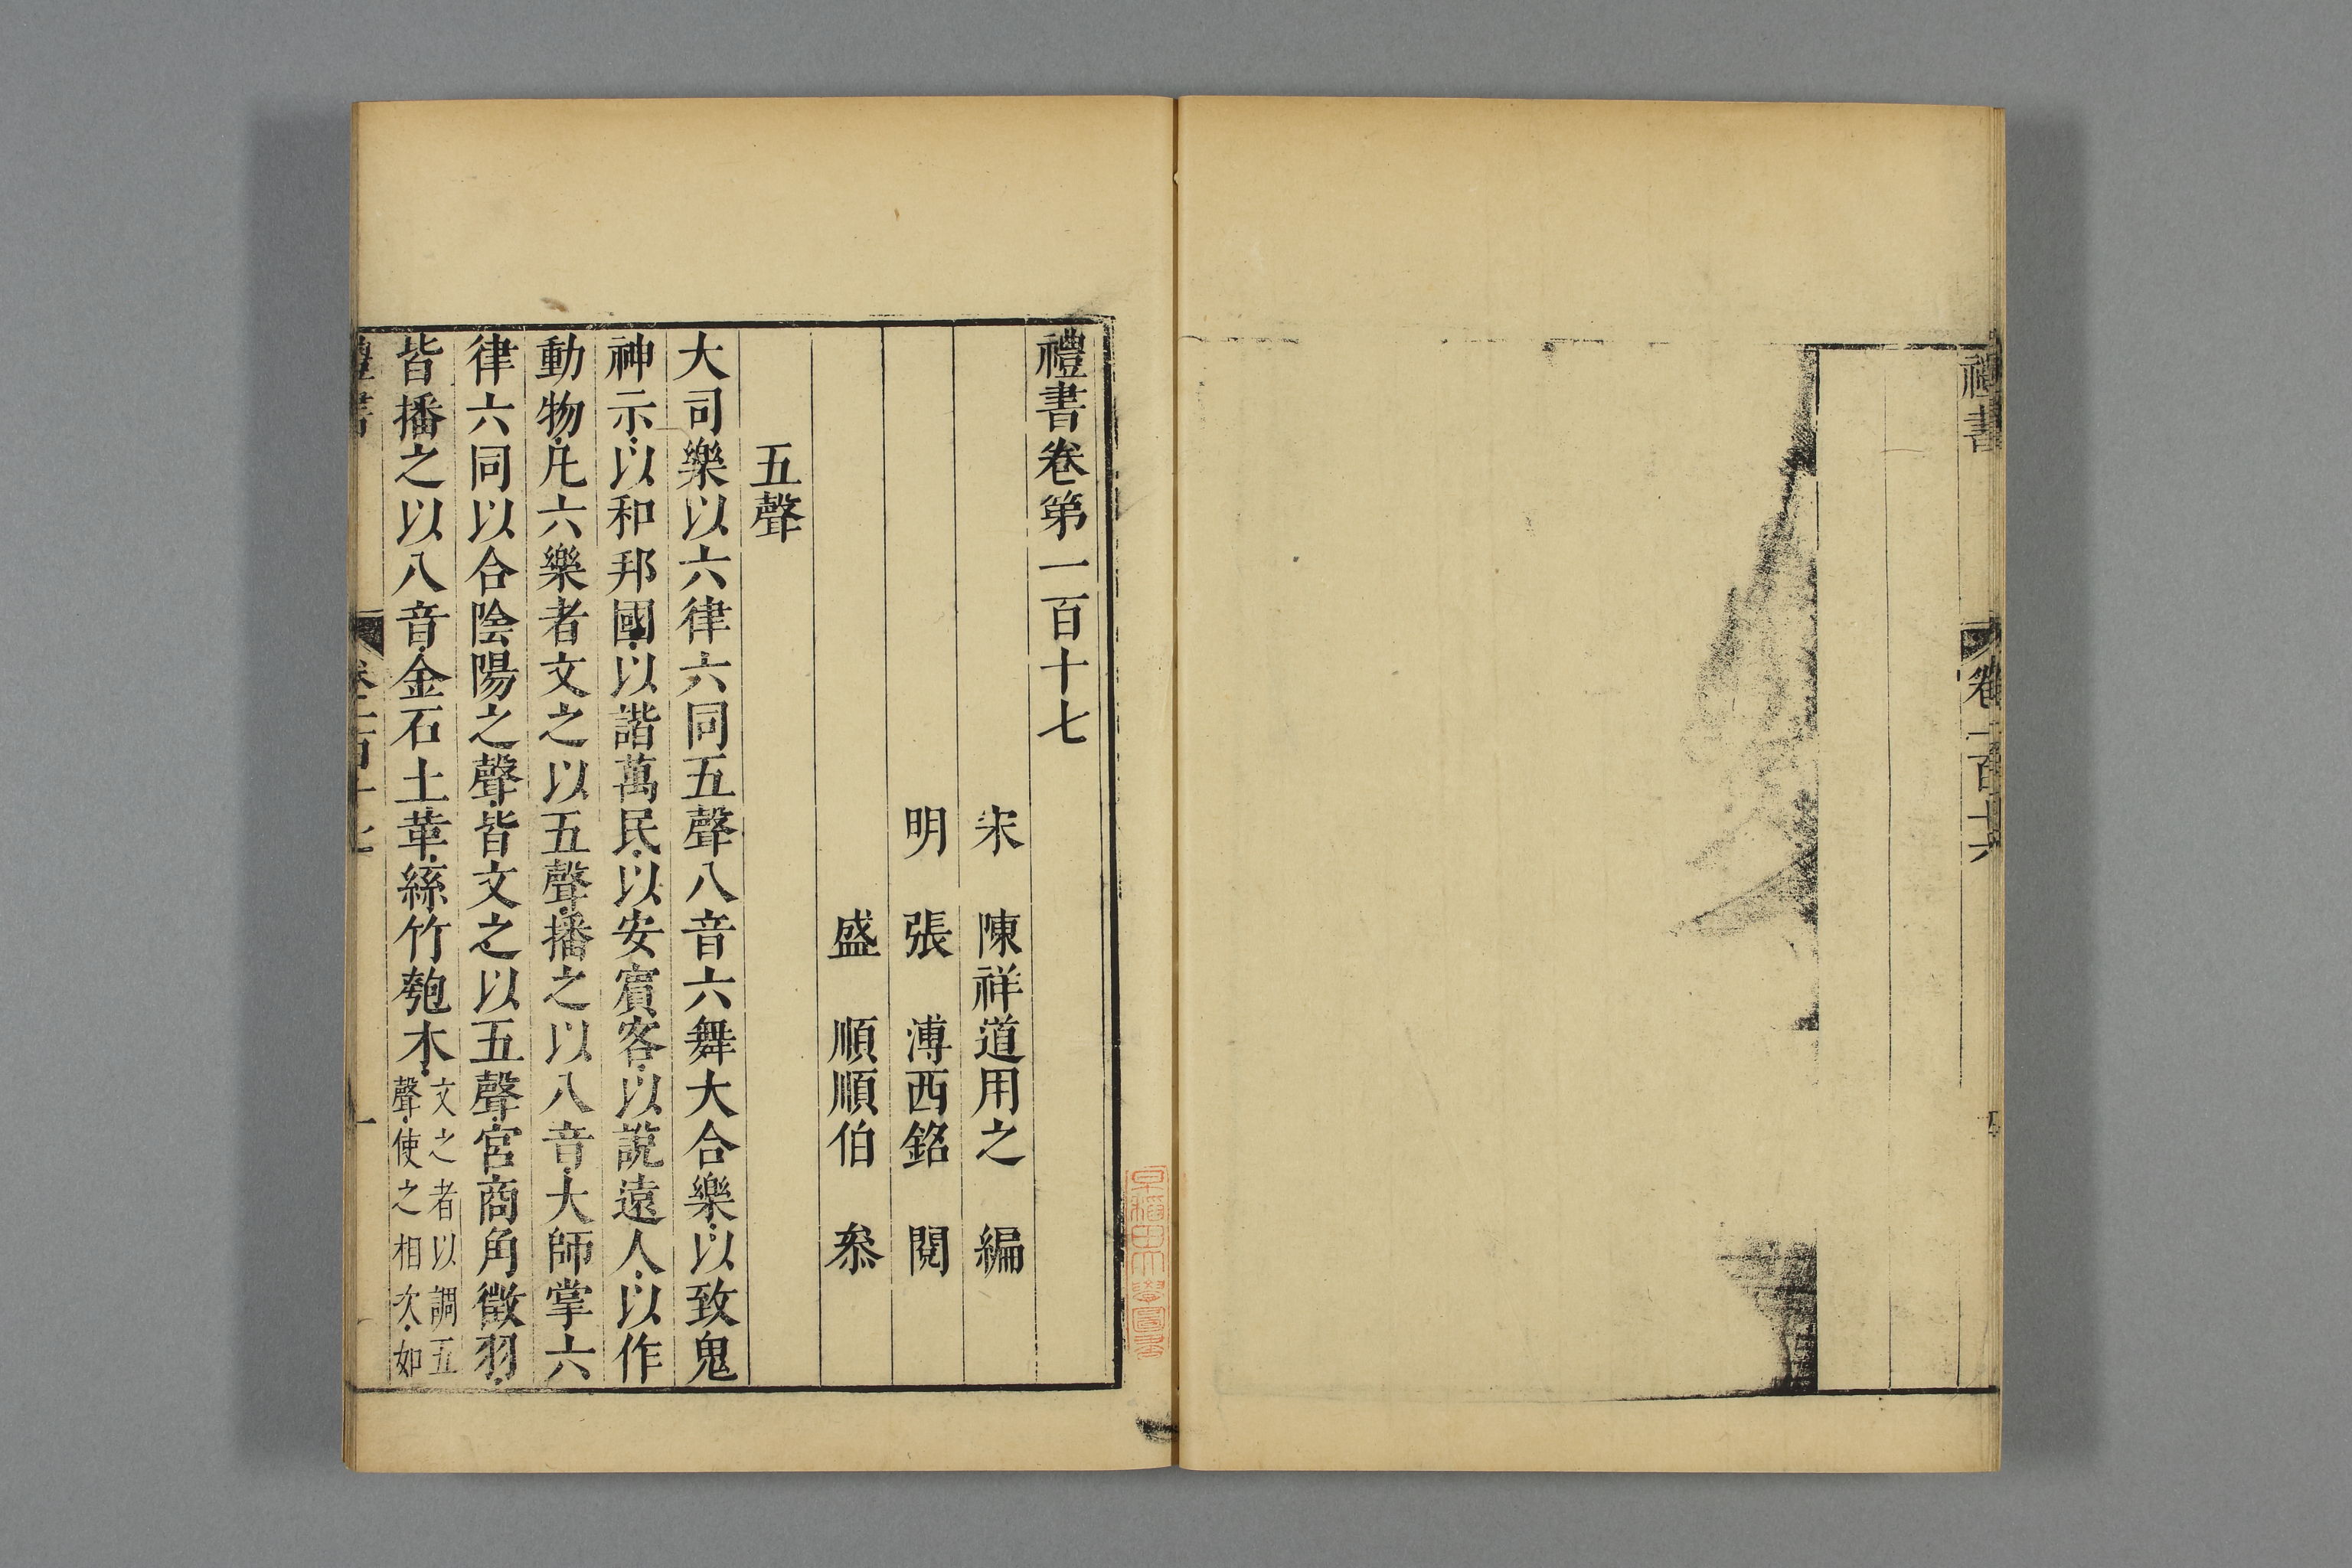 禮書
卷一百十六
禮書卷第一百十七
宋　陳祥道用之　編
明　張　溥西銘　閱
盛　順順伯　叅
五聲
大司樂以六律六同五聲八音六舞大合樂以致鬼
神示以和邦國以諧萬民以安賓客以說遠人以作
動物凢六樂者文之以五聲播之以八音大師掌六
律六同以合陰陽之聲皆文之以五聲宮商角徵羽
皆播之以八音金石土革絲竹匏木
文之者以調五
聲使之相次如
禮書
卷一百十七
一
早稻田大學圖書